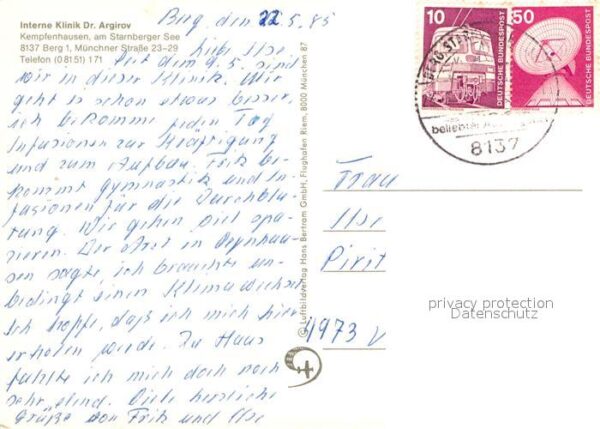 Interne Klinik Dr. Argirov
Kempfenhausen, am Starnberger See
8137 Berg 1, Münchner Straße 23–29
Telefon (0 81 51) 171
Berg, den 22.5.85
Liebe Ilse,
Seit dem 9.5. sind
wir in dieser Klinik. Mir
geht es schon etwas besser,
ich bekomme jeden Tag
Infusionen zur Kräftigung
und zum Aufbau. Fritz be-
kommt gymnastik und In-
fusionen für die Durchblu-
tung. Wir gehen viel spa-
zieren. Der Arzt in Oeynhau-
sen sagte, ich brauchte un-
bedingt einen Klimawechsel
Ich hoffe, daß ich mich hier
erholen werde. Zu Haus
fühlte ich mich doch noch
sehr elend. Viele herzliche
Grüße von Fritz und Ilse
© Luftbildverlag Hans Bertram GmbH, Flughafen Riem, 8000 München 87
10
DEUTSCHE BUNDESPOST
50
DEUTSCHE BUNDESPOST
BERG, STARNB
beliebter
8137
Frau
Ilse
Pirit
4973 V
privacy protection
Datenschutz